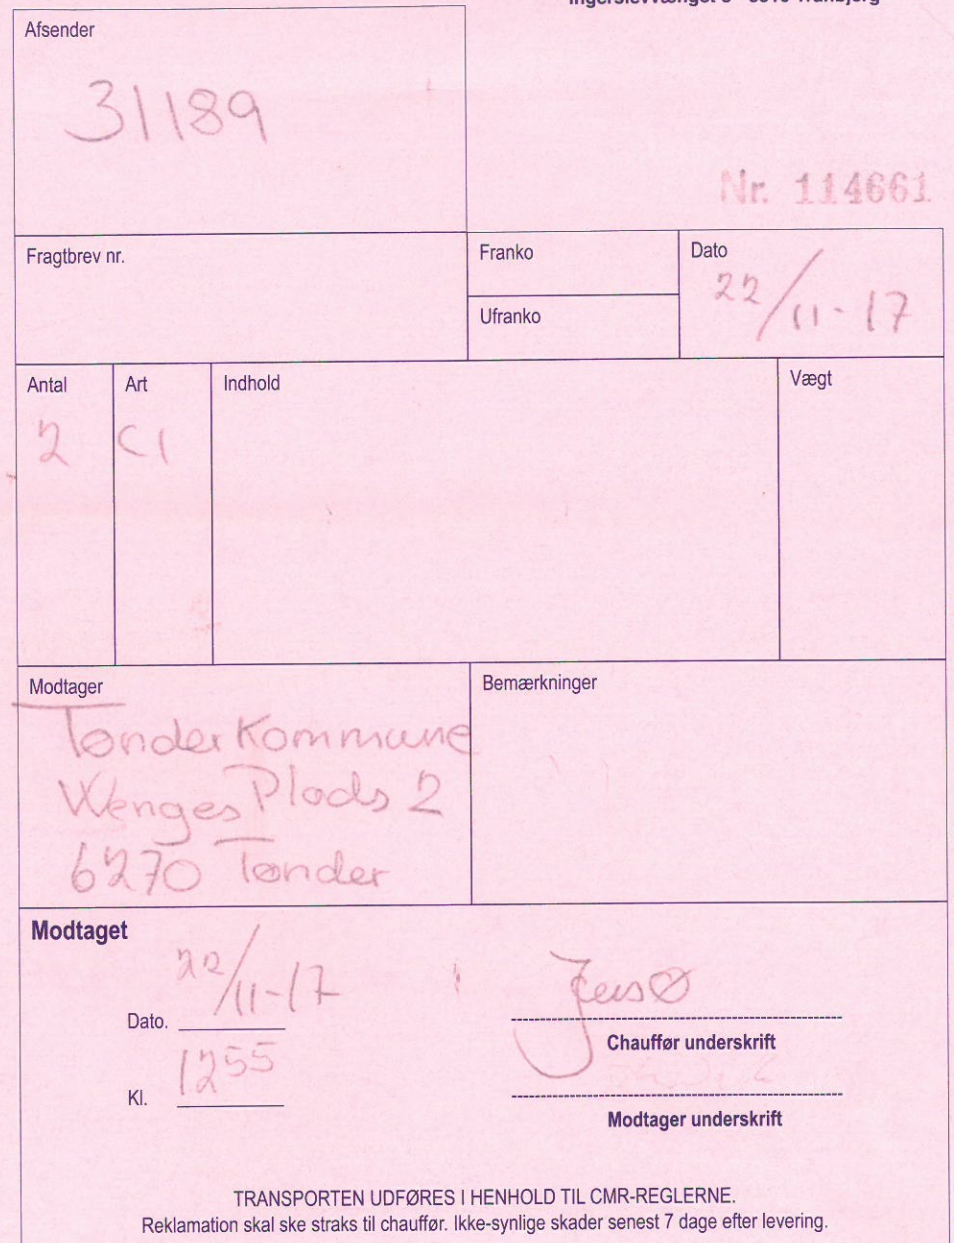 Afsender
31189
Nr. 114661
Fragtbrev nr.
Franko
Ufranko
Dato
22/11-17
Antal
Art
Indhold
Vægt
2
C1
Modtager
Bemærkninger
Tønder Kommune
Wenges Plads 2
6270 Tønder
Modtaget
Dato. 22/11-17
Jens Ø
Chauffør underskrift
Kl. 1255
Modtager underskrift
TRANSPORTEN UDFØRES I HENHOLD TIL CMR-REGLERNE.
Reklamation skal ske straks til chauffør. Ikke-synlige skader senest 7 dage efter levering.